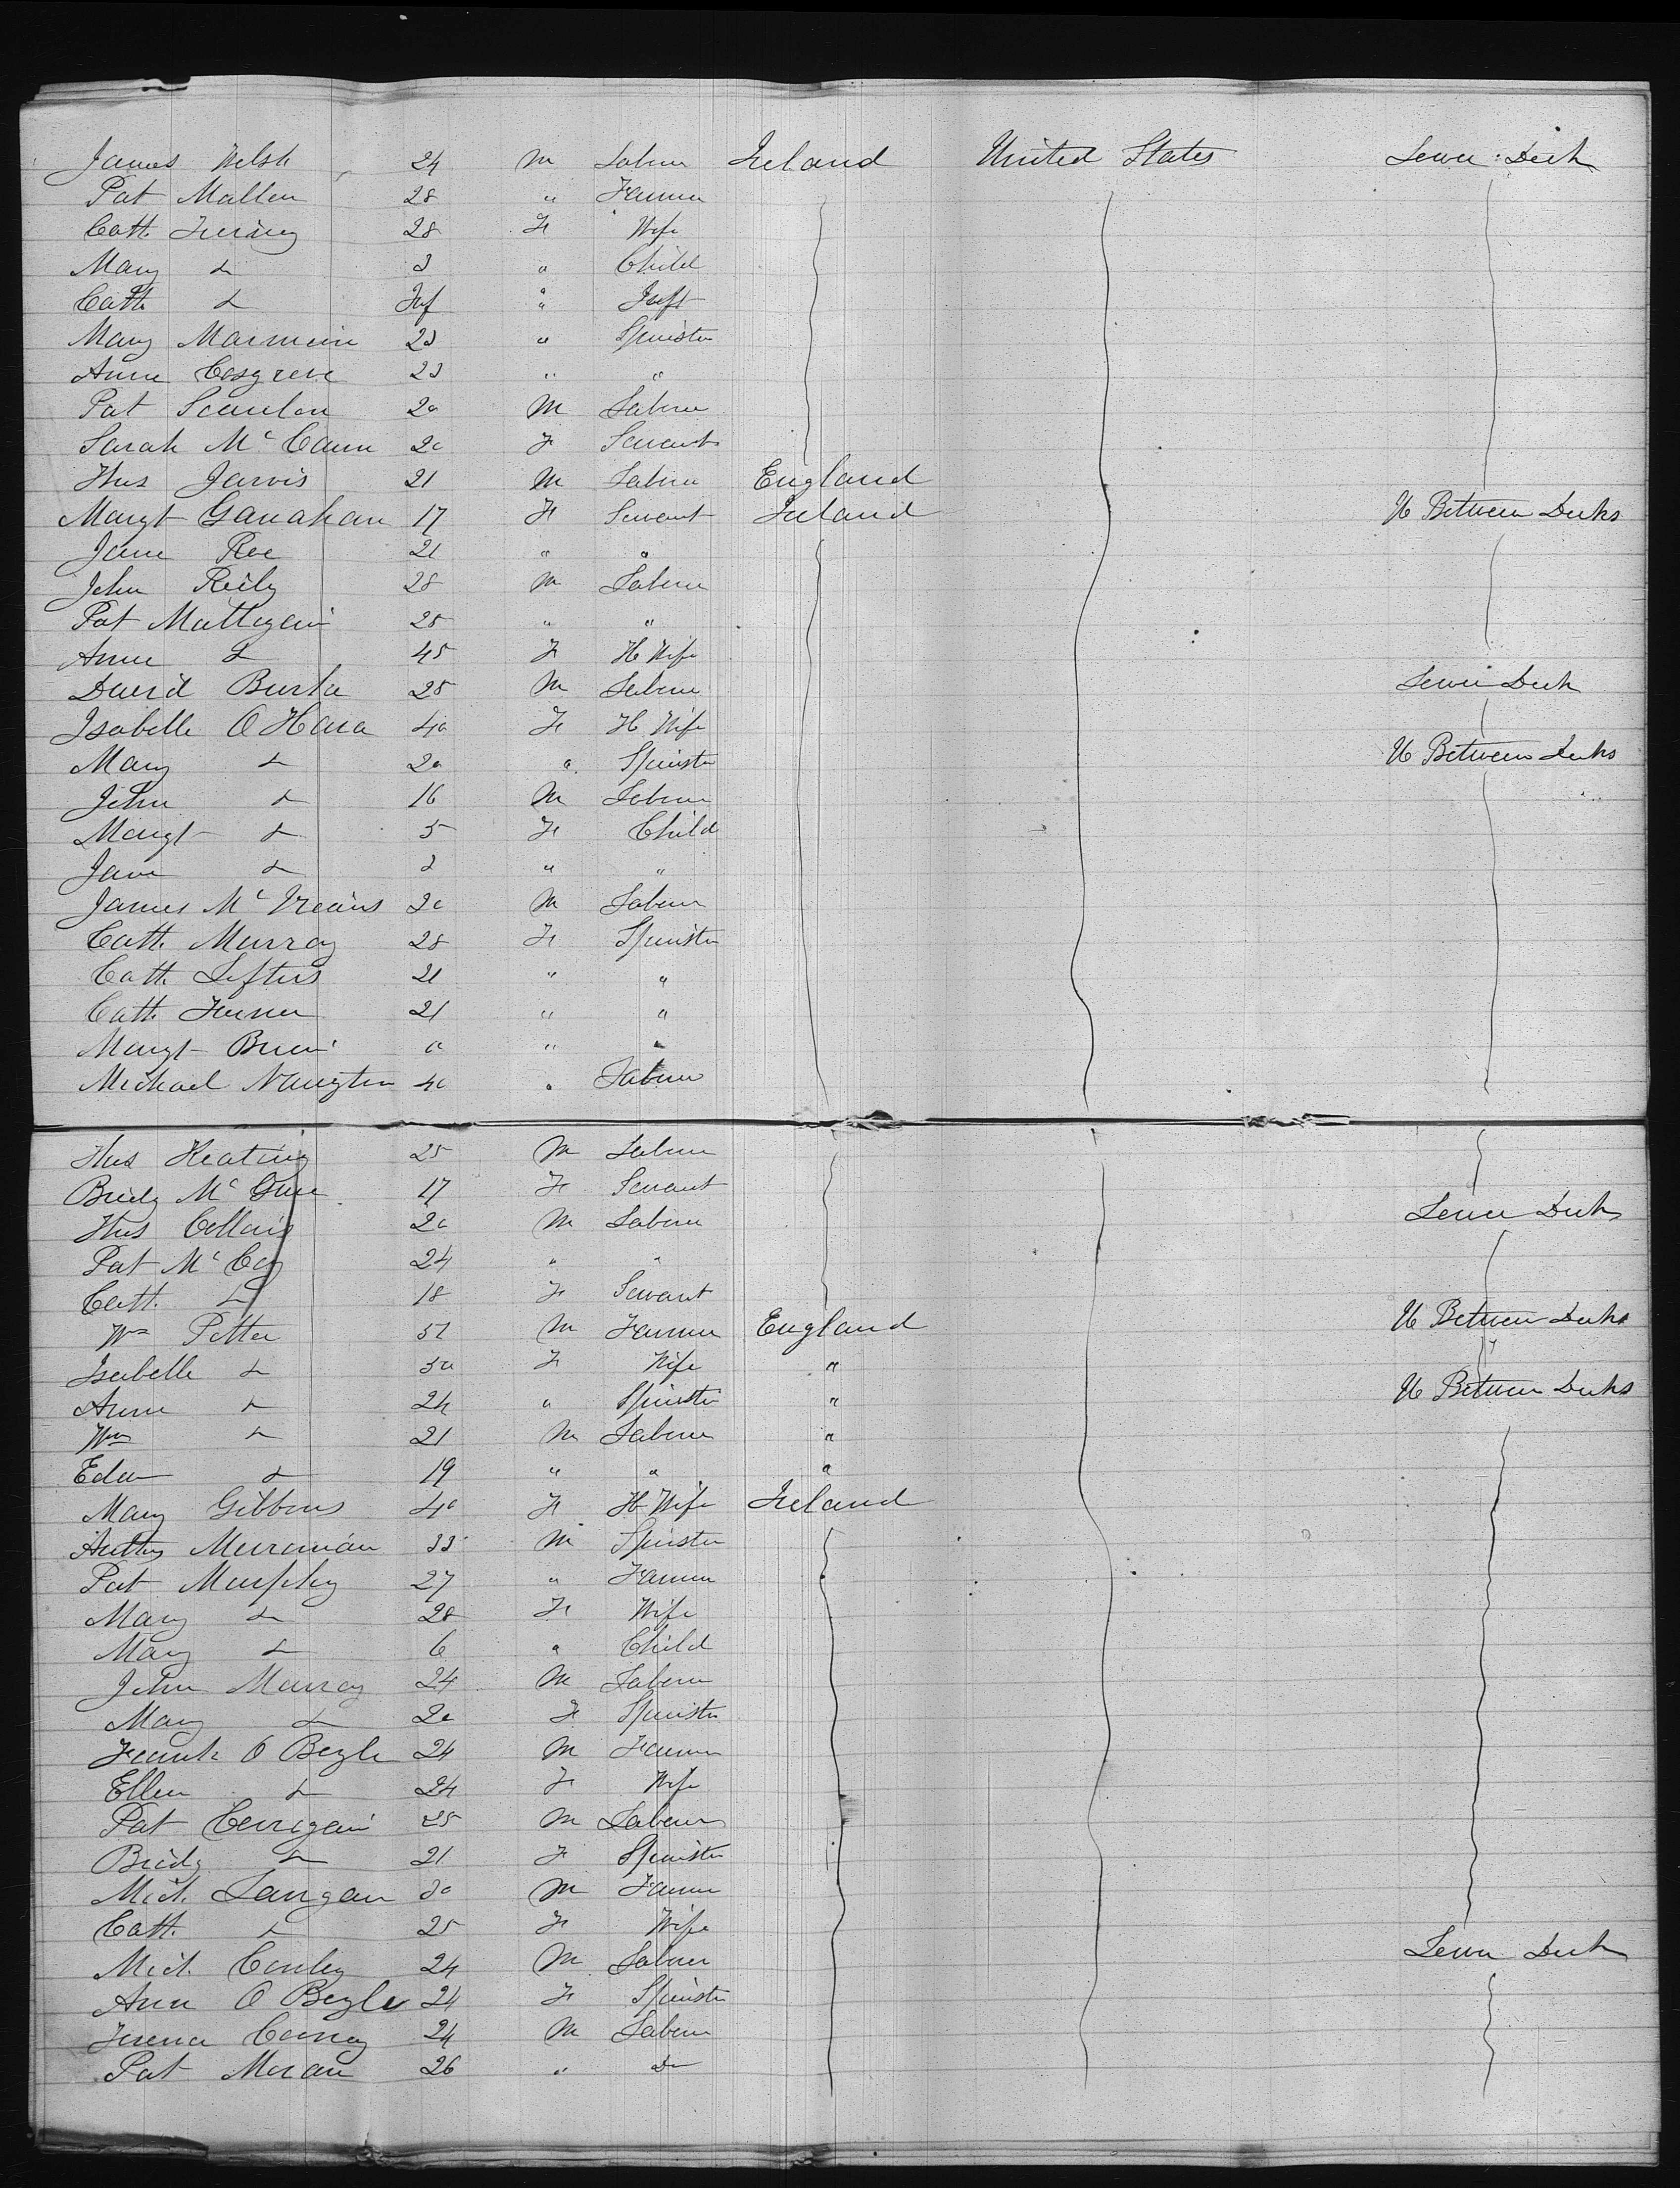 James Welsh 24 M Labour Ireland United States Lower Deck
Pat Mallen 28 " Farmer
Cath. 28 F Wife
Mary do 3 " Child
Cath do Inf " Inft
Mary 23 " Spinster
Anne Cosgrove 23 " "
Pat Scanlon 20 M Labour
Sarah McCann 20 F Servant
Thos Jarvis 21 M Labour England
Margt Ganahan 17 F Servant Ireland U Between Decks
Jane Roe 21 " "
John Reily 28 M Labour
Pat 25 " "
Anne do 45 F H Wife
David Burke 25 M Labour Lower Deck
Isabelle O Hara 40 F H Wife
Mary do 20 " Spinster U Between Decks
John do 16 M Labour
Margt do 5 F Child
Jane do 3 " "
James 20 M Labour
Cath. Murray 28 F Spinster
Cath. Lefters 21 " "
Cath. 21 " "
Margt " "
Michael Naughton 40 " Labour
Thos Keating 25 M Labour
Bridg 17 F Servant
Thos Collins 20 M Labour Lower Deck
Pat McCoy 24 " "
Cath. do 18 F Servant
Wm Potter 51 M Farmer England U Between Decks
Isabelle do 50 F Wife "
Anne do 24 " Spinster " U Between Decks
Wm do 21 M Labour "
Edw do 19 " " "
Mary Gibbons 40 F H Wife Ireland
Anthy 33 M Spinster
Pat Murphy 27 " Farmer
Mary do 28 F Wife
Mary do 6 " Child
John Murray 24 M Labour
Mary do 20 F Spinster
Frank O Boyle 24 M Farmer
Ellen do 24 F Wife
Pat Corrigan 25 M Labour
Bridg do 21 F Spinster
Mich. Langan 30 M Farmer
Cath. do 25 F Wife
Mich. Conley 24 M Labour Lower Deck
Ann O Boyle 24 F Spinster
24 M Labour
Pat Moran 26 " Do